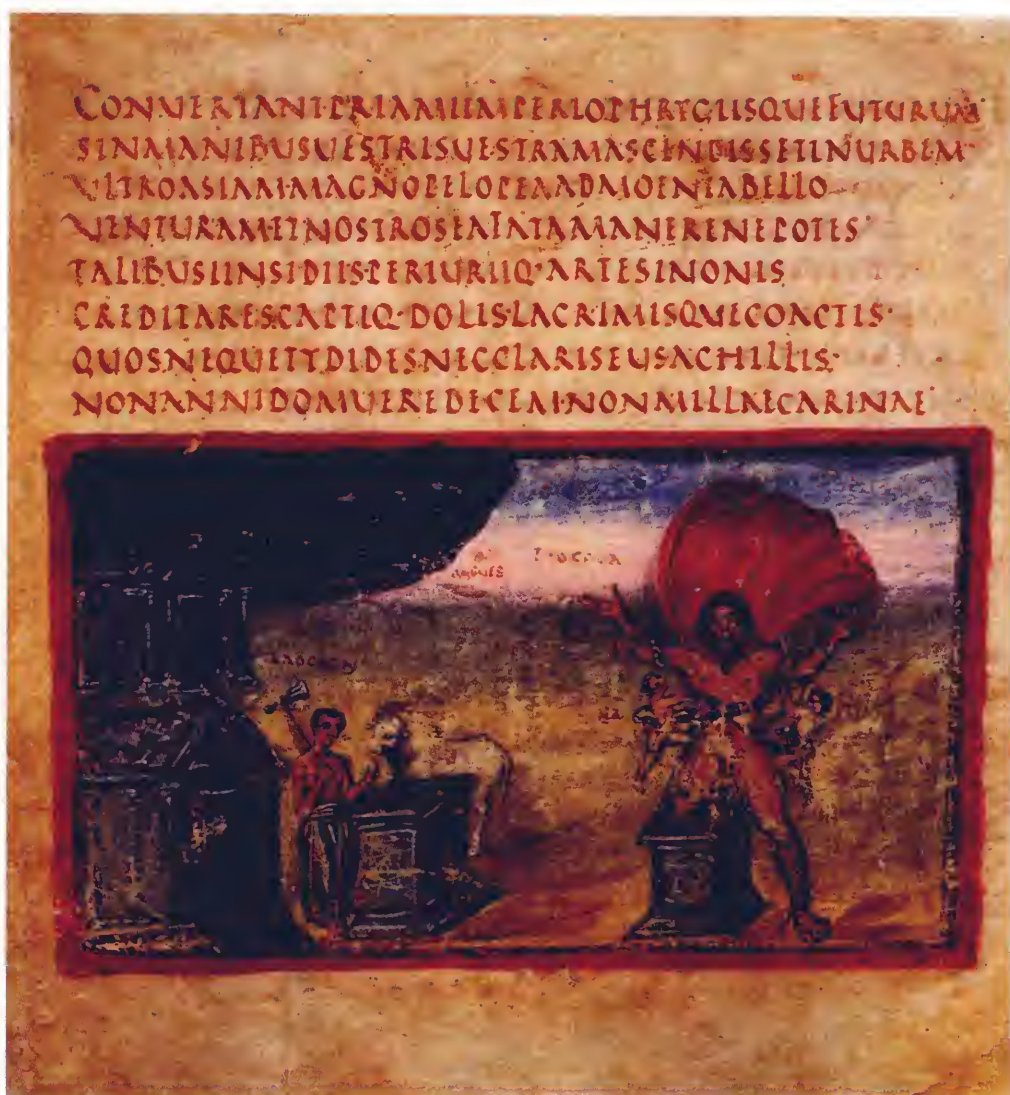 CONUERTANTPRIAMIIMPERIOPHRYGIISQUEFUTURUM
SINMANIBUSUESTRISUESTRAMASCENDISSETINURBEM
ULTROASIAMMAGNOPELOPEAADMOENIABELLO
UENTURAMETNOSTROSEAFATAMANERENEPOTES
TALIBUSINSIDIIS·PERIURIIQ·ARTESINONIS
CREDITARESCAPTIQ·DOLISLACRIMISQUECOACTIS·
QUOSNEQUETYDIDESNECCLARISEUSACHILLIS·
NONANNIDOMUEREDECEMNONMILLAECARINAE
ANGUES
LAOCOON